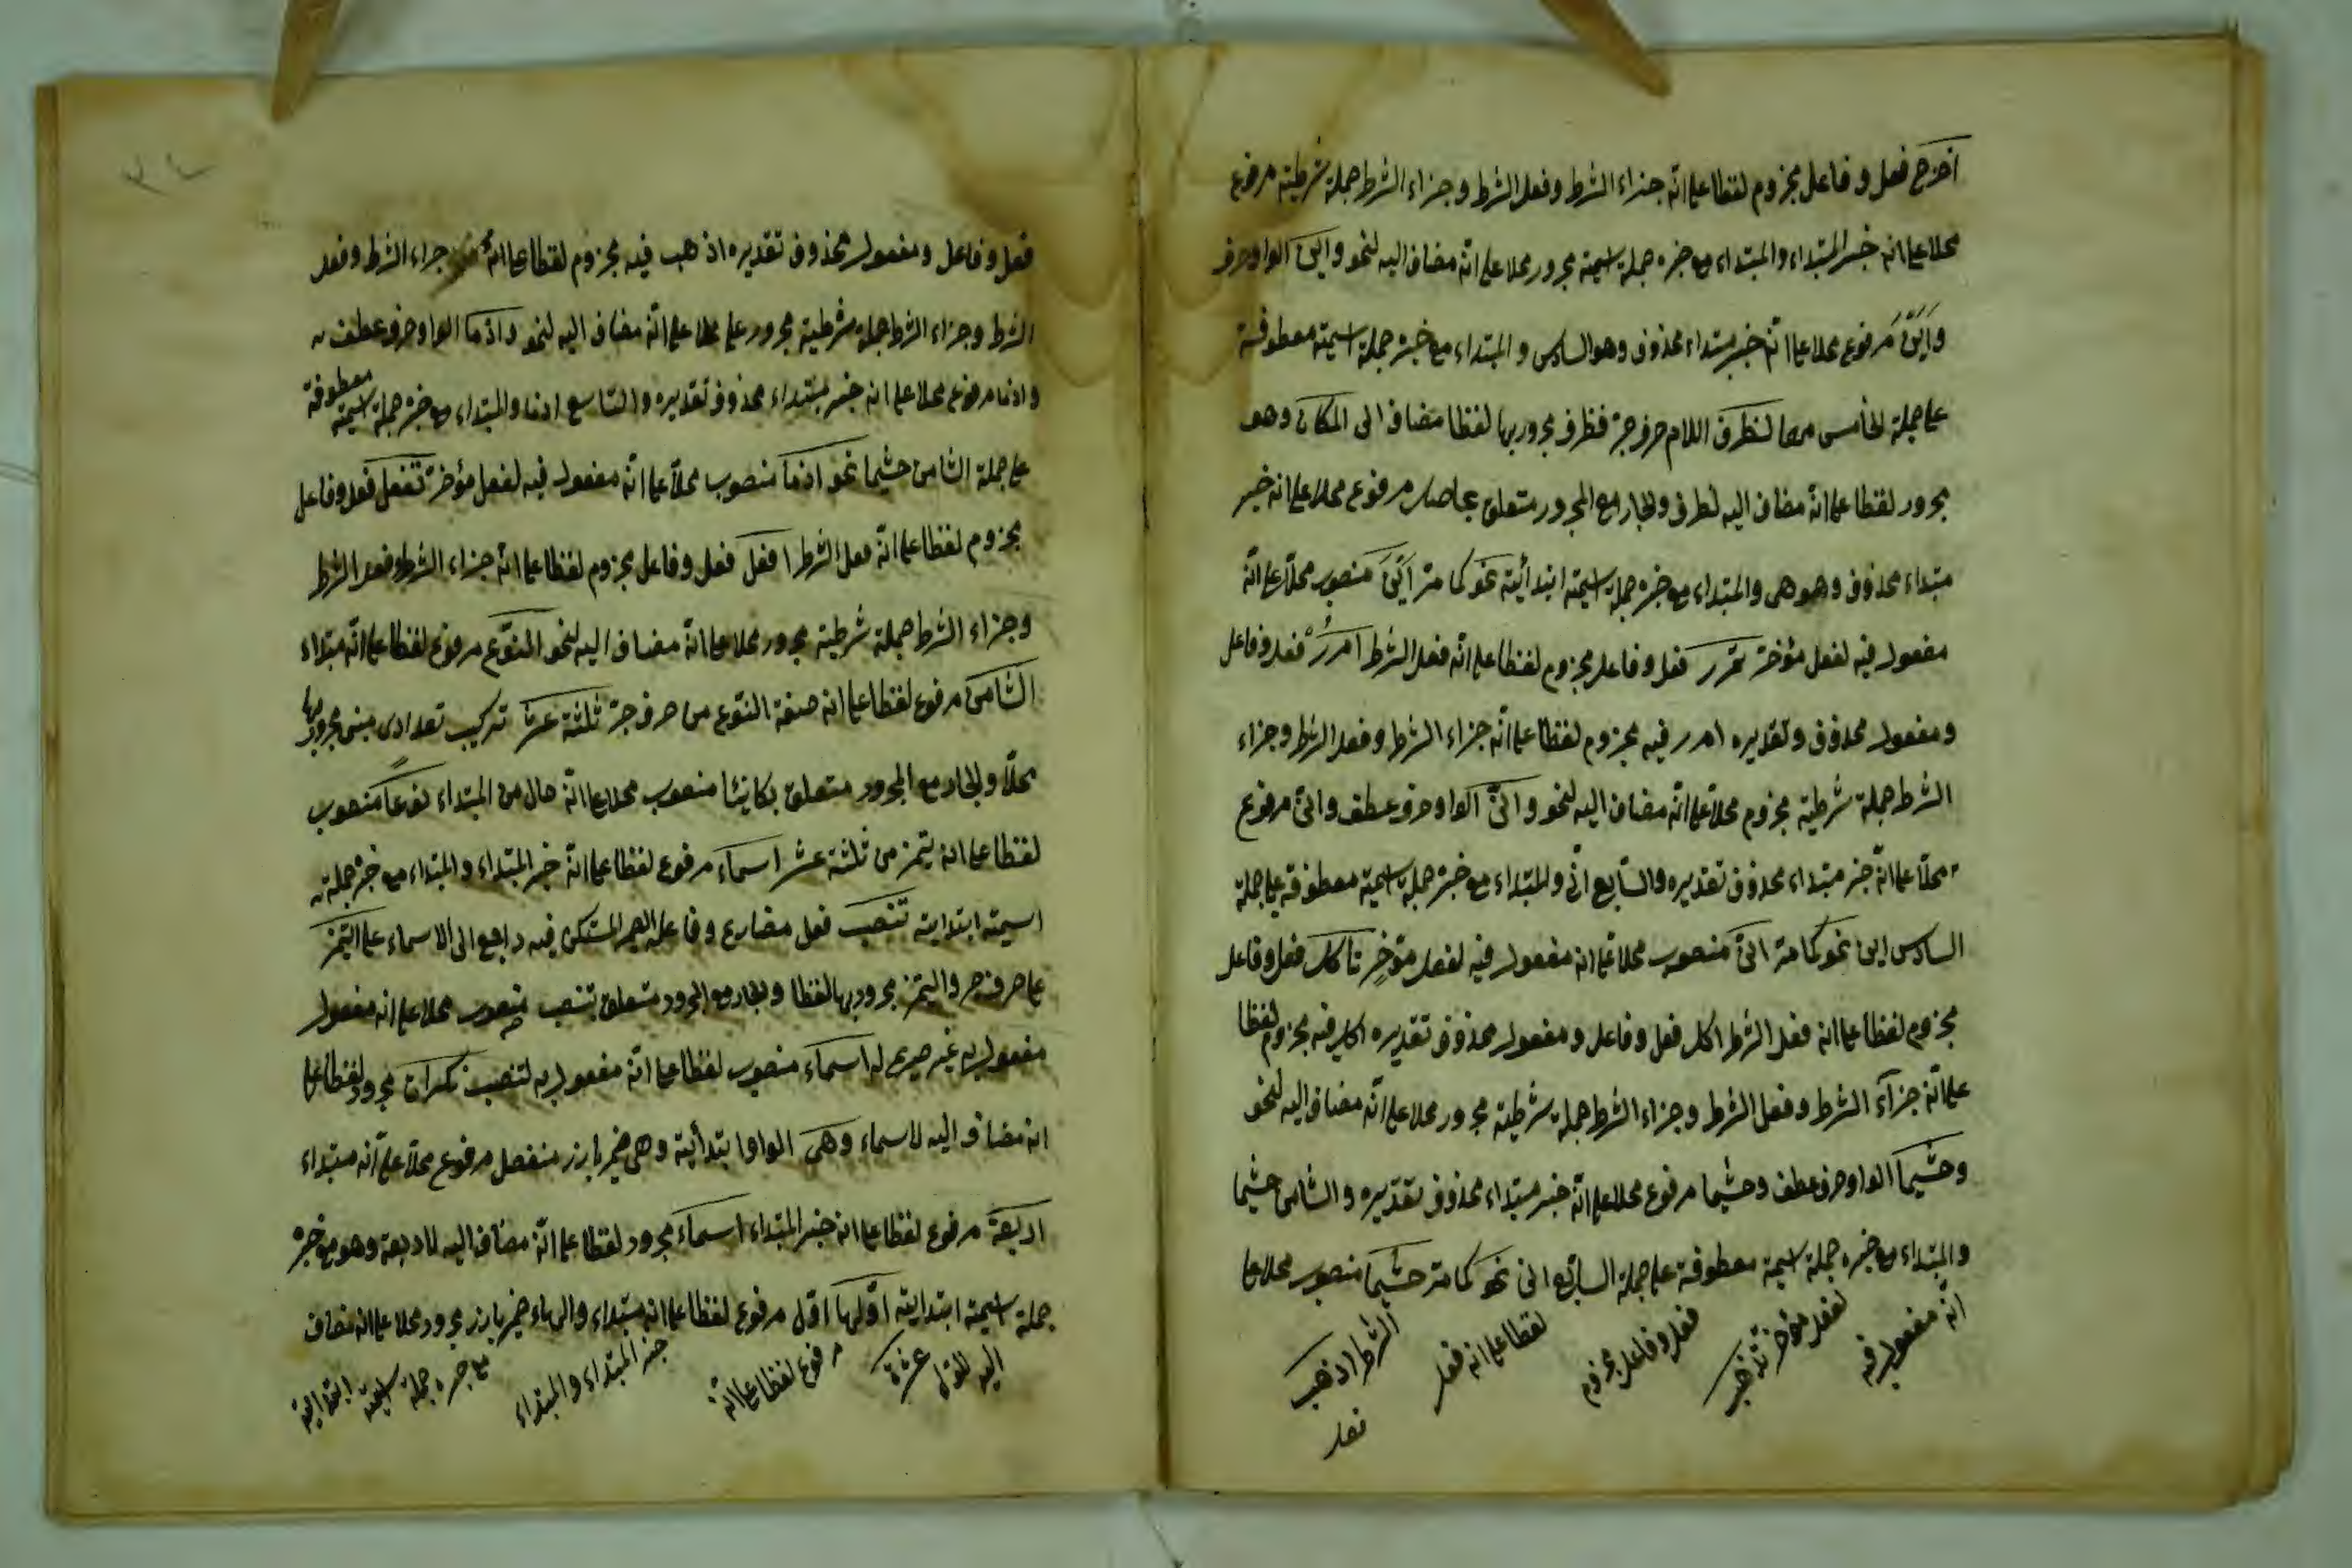 اخرج فعل وفاعل مجزوم لفظا على انّه جزاء الشرط وفعل الشرط وجزاء الشرط جملة شرطية مرفوع
محلا على انه خبر المبتداء والمبتداء مع خبره جملة اسمية مجرور محلا على انّه مضاف اليه لنحو واين الواو حرف
واَيْنَ مرفوع محلا على انّه خبر مبتداء محذوف وهو السادس والمبتداء مع خبره جملة اسمية معطوفة
على جملة الخامس مهما لظرف اللام حرف جرّ فظرف مجرور بها لفظا مضاف الى المكان وهو
مجرور لفظا على انّه مضاف اليه لظرف والجار مع المجرور متعلق بحاصل مرفوع محلا على انه خبر
مبتداء محذوف وهو هى والمبتداء مع خبره جملة اسمية ابتدائية نحو كما مرّ اَيْنَ منصوب محلّا على انّه
مفعول فيه لفعل مؤخر تمرر فعل وفاعل مجزوم لفظا على انّه فعل الشرط امرر فعل وفاعل
ومفعول محذوف وتقديره امرر فيه مجزوم لفظا على انّه جزاء الشرط وفعل الشرط وجزاء
الشرط جملة شرطية مجزوم محلا على انّه مضاف اليه لنحو وانّى الواو حرف عطف وانّى مرفوع
محلّا على انّه خبر مبتداء محذوف تقديره والسابع انّى والمبتداء مع خبره جملة اسمية معطوفة على جملة
السادس اين نحو كما مرّ انّى منصوب محلّا على انه مفعول فيه لفعل مؤخر تأكل فعل وفاعل
مجزوم لفظا على انه فعل الشرط اكل فعل وفاعل ومفعول محذوف تقديره اكل فيه مجزوم لفظا
على انّه جزاء الشرط وفعل الشرط وجزاء الشرط جملة شرطية مجرور محلا على انّه مضاف اليه لنحو
وحيثما الواو حرف عطف وحيثما مرفوع محلا على انّه خبر مبتداء محذوف تقديره والثامن حيثما
والمبتداء مع خبره جملة اسمية معطوفة على جملة السابع انى نحو كما مرّ حيثما منصوب محلا على
انّه مفعول فيه لفعل مؤخر تذهب فعل وفاعل مجزوم لفظا على انه فعل الشرط اذهب
فعل
فعل وفاعل ومفعول محذوف تقديره اذهب فيه مجزوم لفظا على انّه جزاء الشرط وفعل
الشرط وجزاء الشرط جملة شرطية مجرور محلا على انّه مضاف اليه لنحو واذما الواو حرف عطف
واذما مرفوع محلا على انه خبر مبتداء محذوف تقديره والتاسع اذما والمبتداء مع خبره جملة اسمية معطوفة
على جملة الثامن حيثما نحو اذما منصوب محلّا على انّه مفعول فيه لفعل مؤخر تفعل فعل وفاعل
مجزوم لفظا على انّه فعل الشرط افعل فعل وفاعل مجزوم لفظا على انّه جزاء الشرط وفعل الشرط
وجزاء الشرط جملة شرطية مجرور محلا على انّه مضاف اليه لنحو النوع مرفوع لفظا على انّه مبتداء
الثامن مرفوع لفظا على انه صفة النوع من حرف جرّ ثلثة عشر تركيب تعدادى مبنى مجرور بها
محلّا والجار مع المجرور متعلق بكائنا منصوب محلا على انّه حال من المبتداء نوعا منصوب
لفظا على انه تميز من ثلثة عشر اسماء مرفوع لفظا على انّه خبر المبتداء والمبتداء مع خبره جملة
اسمية ابتدائية تنصب فعل مضارع وفاعله الضمير المستكن فيه راجع الى الاسماء على التميز
على حرف جر والتميز مجرور بها لفظا والجار مع المجرور متعلق بتنصب منصوب محلا على انه مفعول
مفعول به غير صريح له اسماء منصوب لفظا على انّه مفعول به لتنصب نكرات مجرور لفظا على
انه مضاف اليه لاسماء وهى الواو ابتدائية وهى ضمير بارز منفصل مرفوع محلّا على انّه مبتداء
اربعة مرفوع لفظا على انه خبر المبتداء اسماء مجرور لفظا على انّه مضاف اليه لاربعة وهو مع خبره
جملة اسمية ابتدائية اوّلها اوّل مرفوع لفظا على انه مبتداء والهاء ضمير بارز مجرور محلا على انه مضاف
اليه للاول عشرة مرفوع لفظا على انّه خبر المبتداء والمبتداء مع خبره جملة اسمية ابتدائية